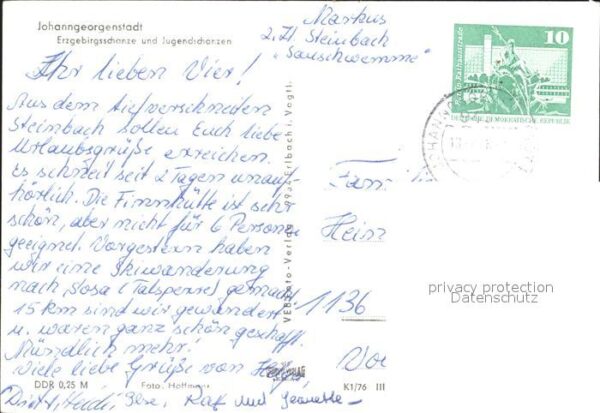 Johanngeorgenstadt
Erzgebirgsschanze und Jugendschanzen
Markus
z. Zt. Steinbach
"Sauschwemme"
10
Berlin, Rathausstraße
DEUTSCHE DEMOKRATISCHE REPUBLIK
Ihr lieben Vier!
Aus dem tiefverschneiten
Steinbach sollen Euch liebe
Urlaubsgrüße erreichen.
Es schneit seit 2 Tagen unauf-
hörlich. Die Finnhütte ist sehr
schön, aber nicht für 6 Personen
geeignet. Vorgestern haben
wir eine Skiwanderung
nach Sosa (Talsperre) gemacht
15 km sind wir gewandert
u. waren ganz schön geschafft.
Mündlich mehr!
Viele liebe Grüße von
Heidi, Ilse, Ralf und Jeanette
VEB Foto-Verlag 9934 Erlbach i. Vogtl.
Fam
Hein
1136
DDR 0,25 M
Foto: Hoffmann
K1/76 III
privacy protection
Datenschutz